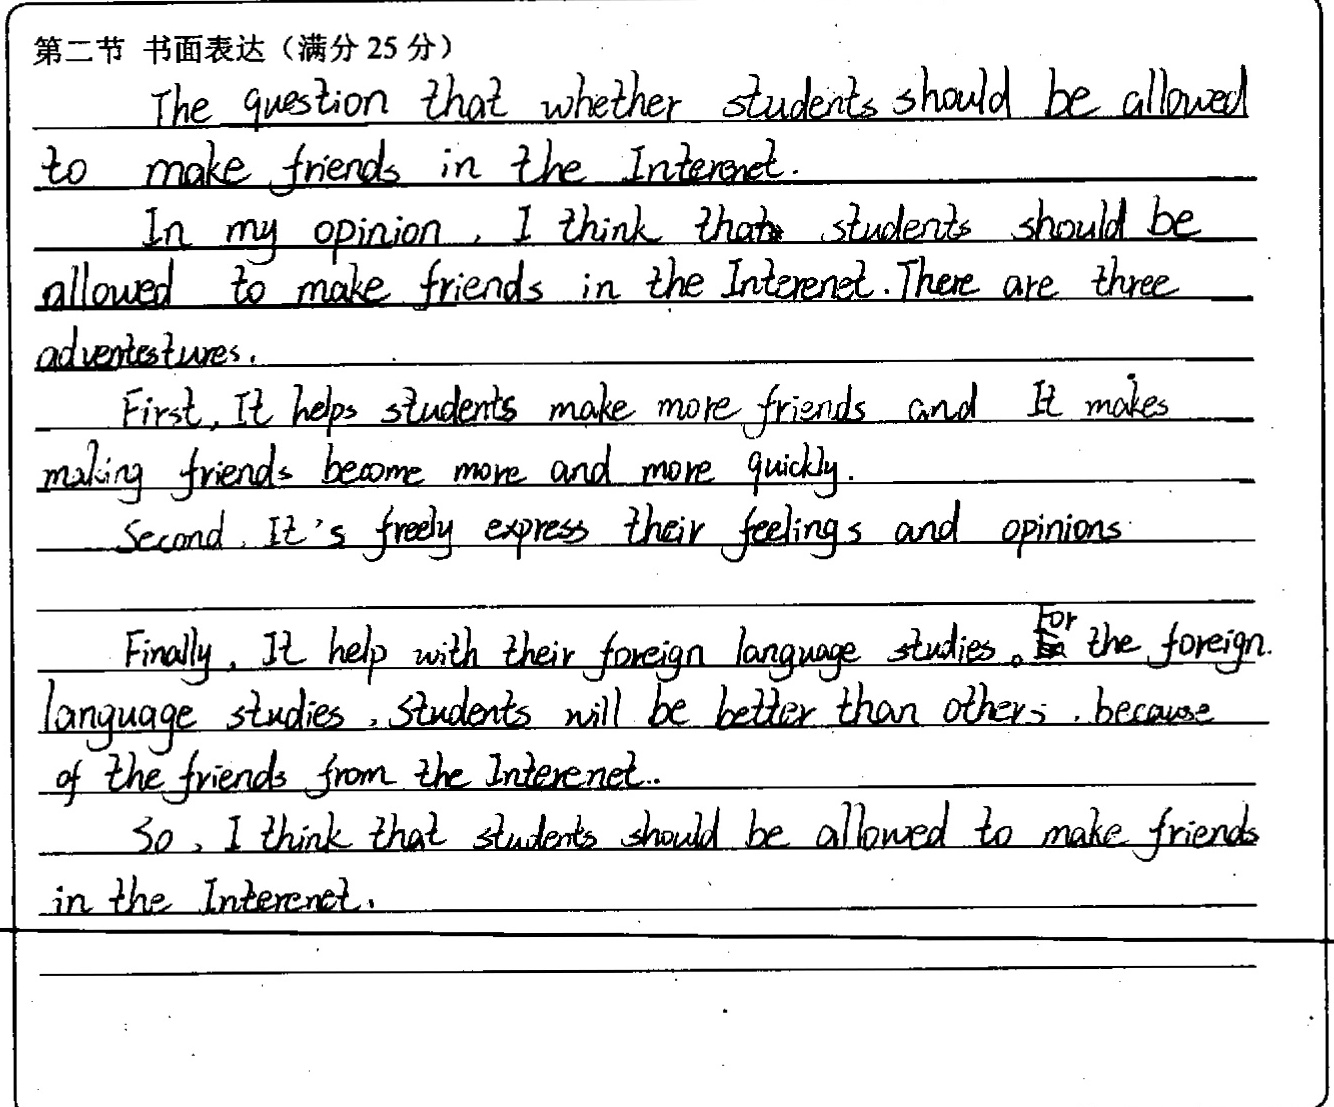 第二节 书面表达（满分 25 分）
The question that whether students should be allowed
to make friends in the Interenet.
In my opinion, I think that students should be
allowed to make friends in the Interenet. There are three
adventestures.
First, It helps students make more friends and It makes
making friends become more and more quickly.
Second, It's freely express their feelings and opinions
Finally, It help with their foreign language studies。For the foreign
language studies, students will be better than others, because
of the friends from the Interenet.
So, I think that students should be allowed to make friends
in the Interenet.